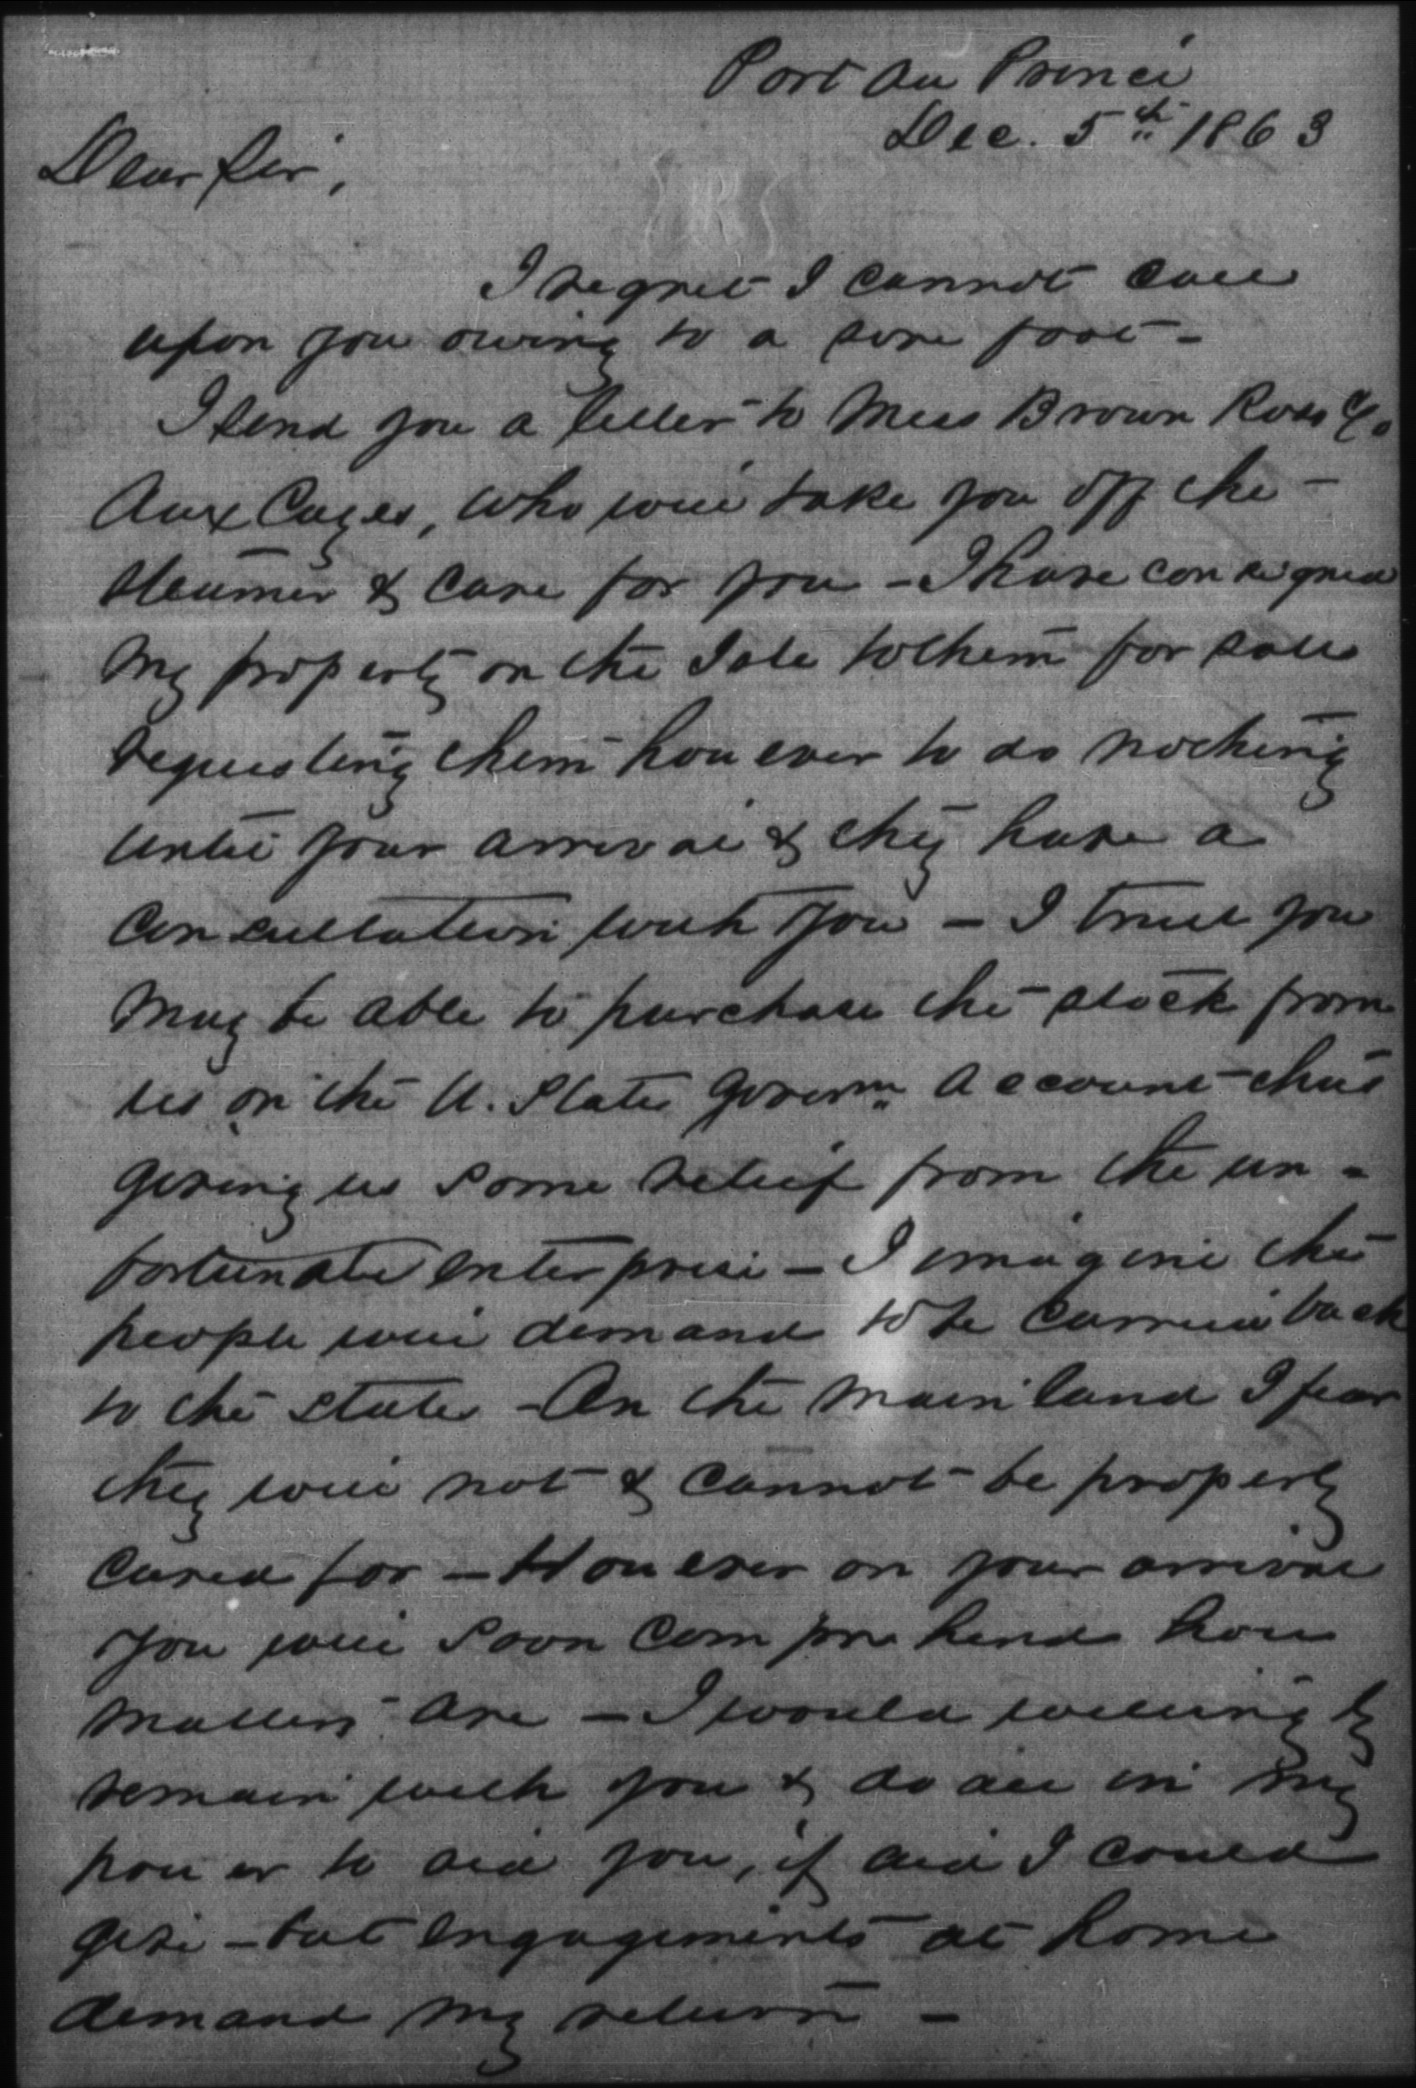 Port Au Prince
Dec. 5th 1863
Dear Sir,
I regret I cannot call
upon you owing to a sore foot -
I send you a letter to Mess Brown Ross & Co
Aux Cayes, who will take you off the -
Steamer & care for you - I have consigned
my property on the Isle to them for sale
requesting them however to do nothing
until your arrival & they have a
consultation with you - I trust you
may be able to purchase the stock from
us on the U. States Governm account - thus
giving us some relief from the un -
fortunate enterprise - I imagine the
people will demand to be carried back
to the States - On the main land I fear
they will not & cannot be properly
cared for - However on your arrival
you will soon comprehend how
matters are - I would willingly
remain with you & do all in my
power to aid you, if aid I could
give - but engagements at home
demand my return -